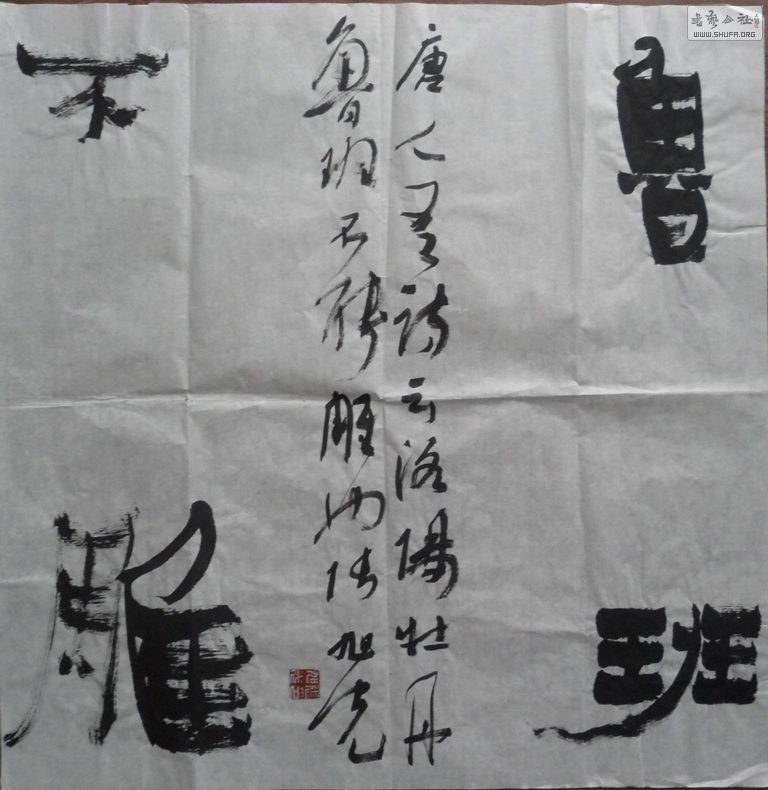 魯班
唐人有诗云洛陽牡丹
魯班不能雕也张旭光
不雕
書藝公社
WWW.SHUFA.ORG